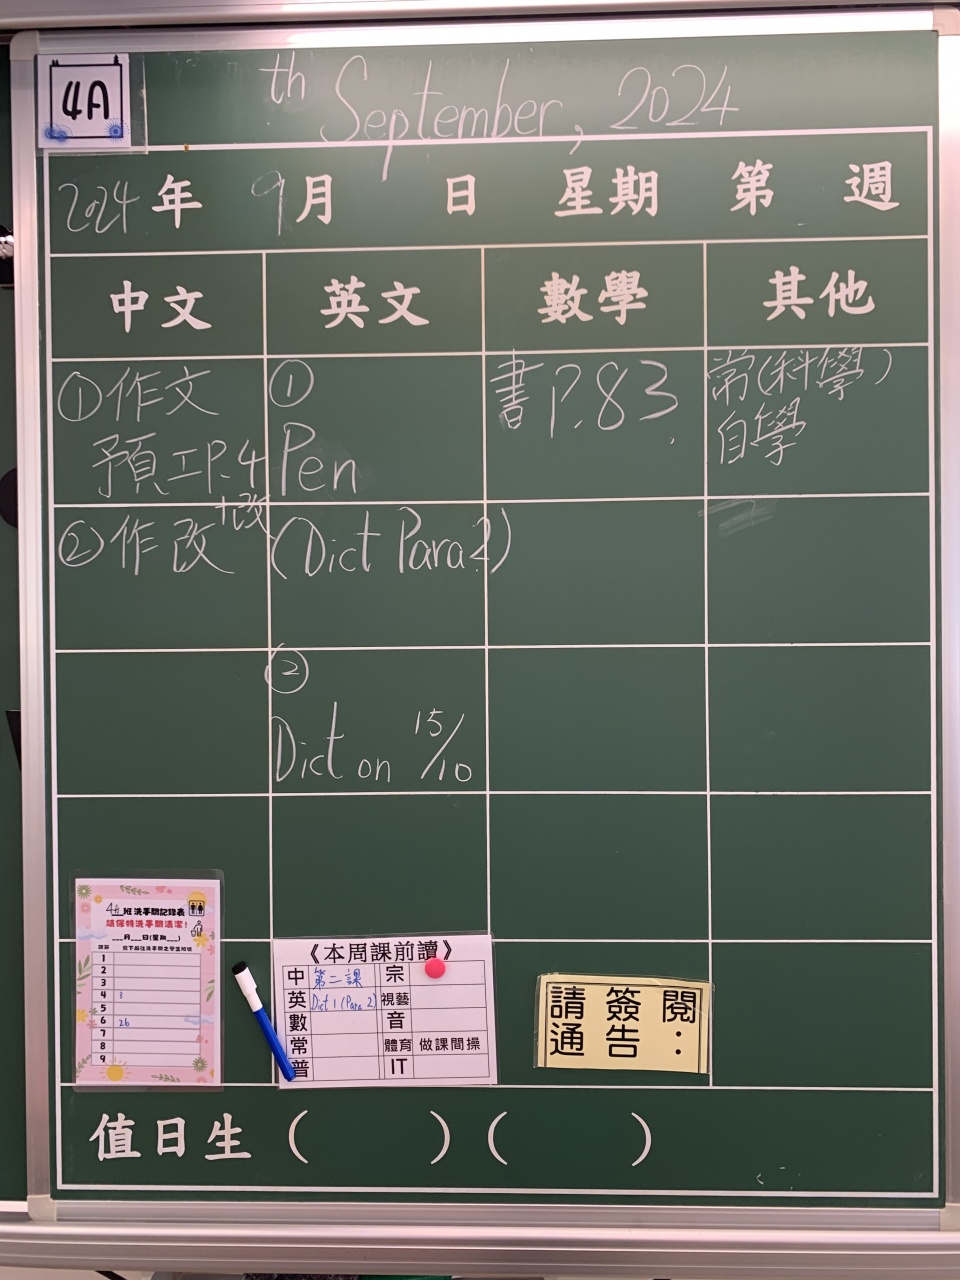 4A
th September, 2024
2024年 9月 日 星期 第 週
中文 英文 數學 其他
①作文
預工P.4
+改
②作改
①
Pen
(Dict Para2)
②
Dict on 15/10
書P.83
常(科學)
自學
4A班洗手間記錄表
請保持洗手間清潔!
___月___日(星期___)
課節 寫下前往洗手間之學生班號
1
2
3
4 3
5
6 26
7
8
9
《本周課前讀》
中 第二課 宗
英 Dict 1 (Para 2) 視藝
數 音
常 體育 做課間操
普 IT
請簽閱
通告:
值日生( )( )